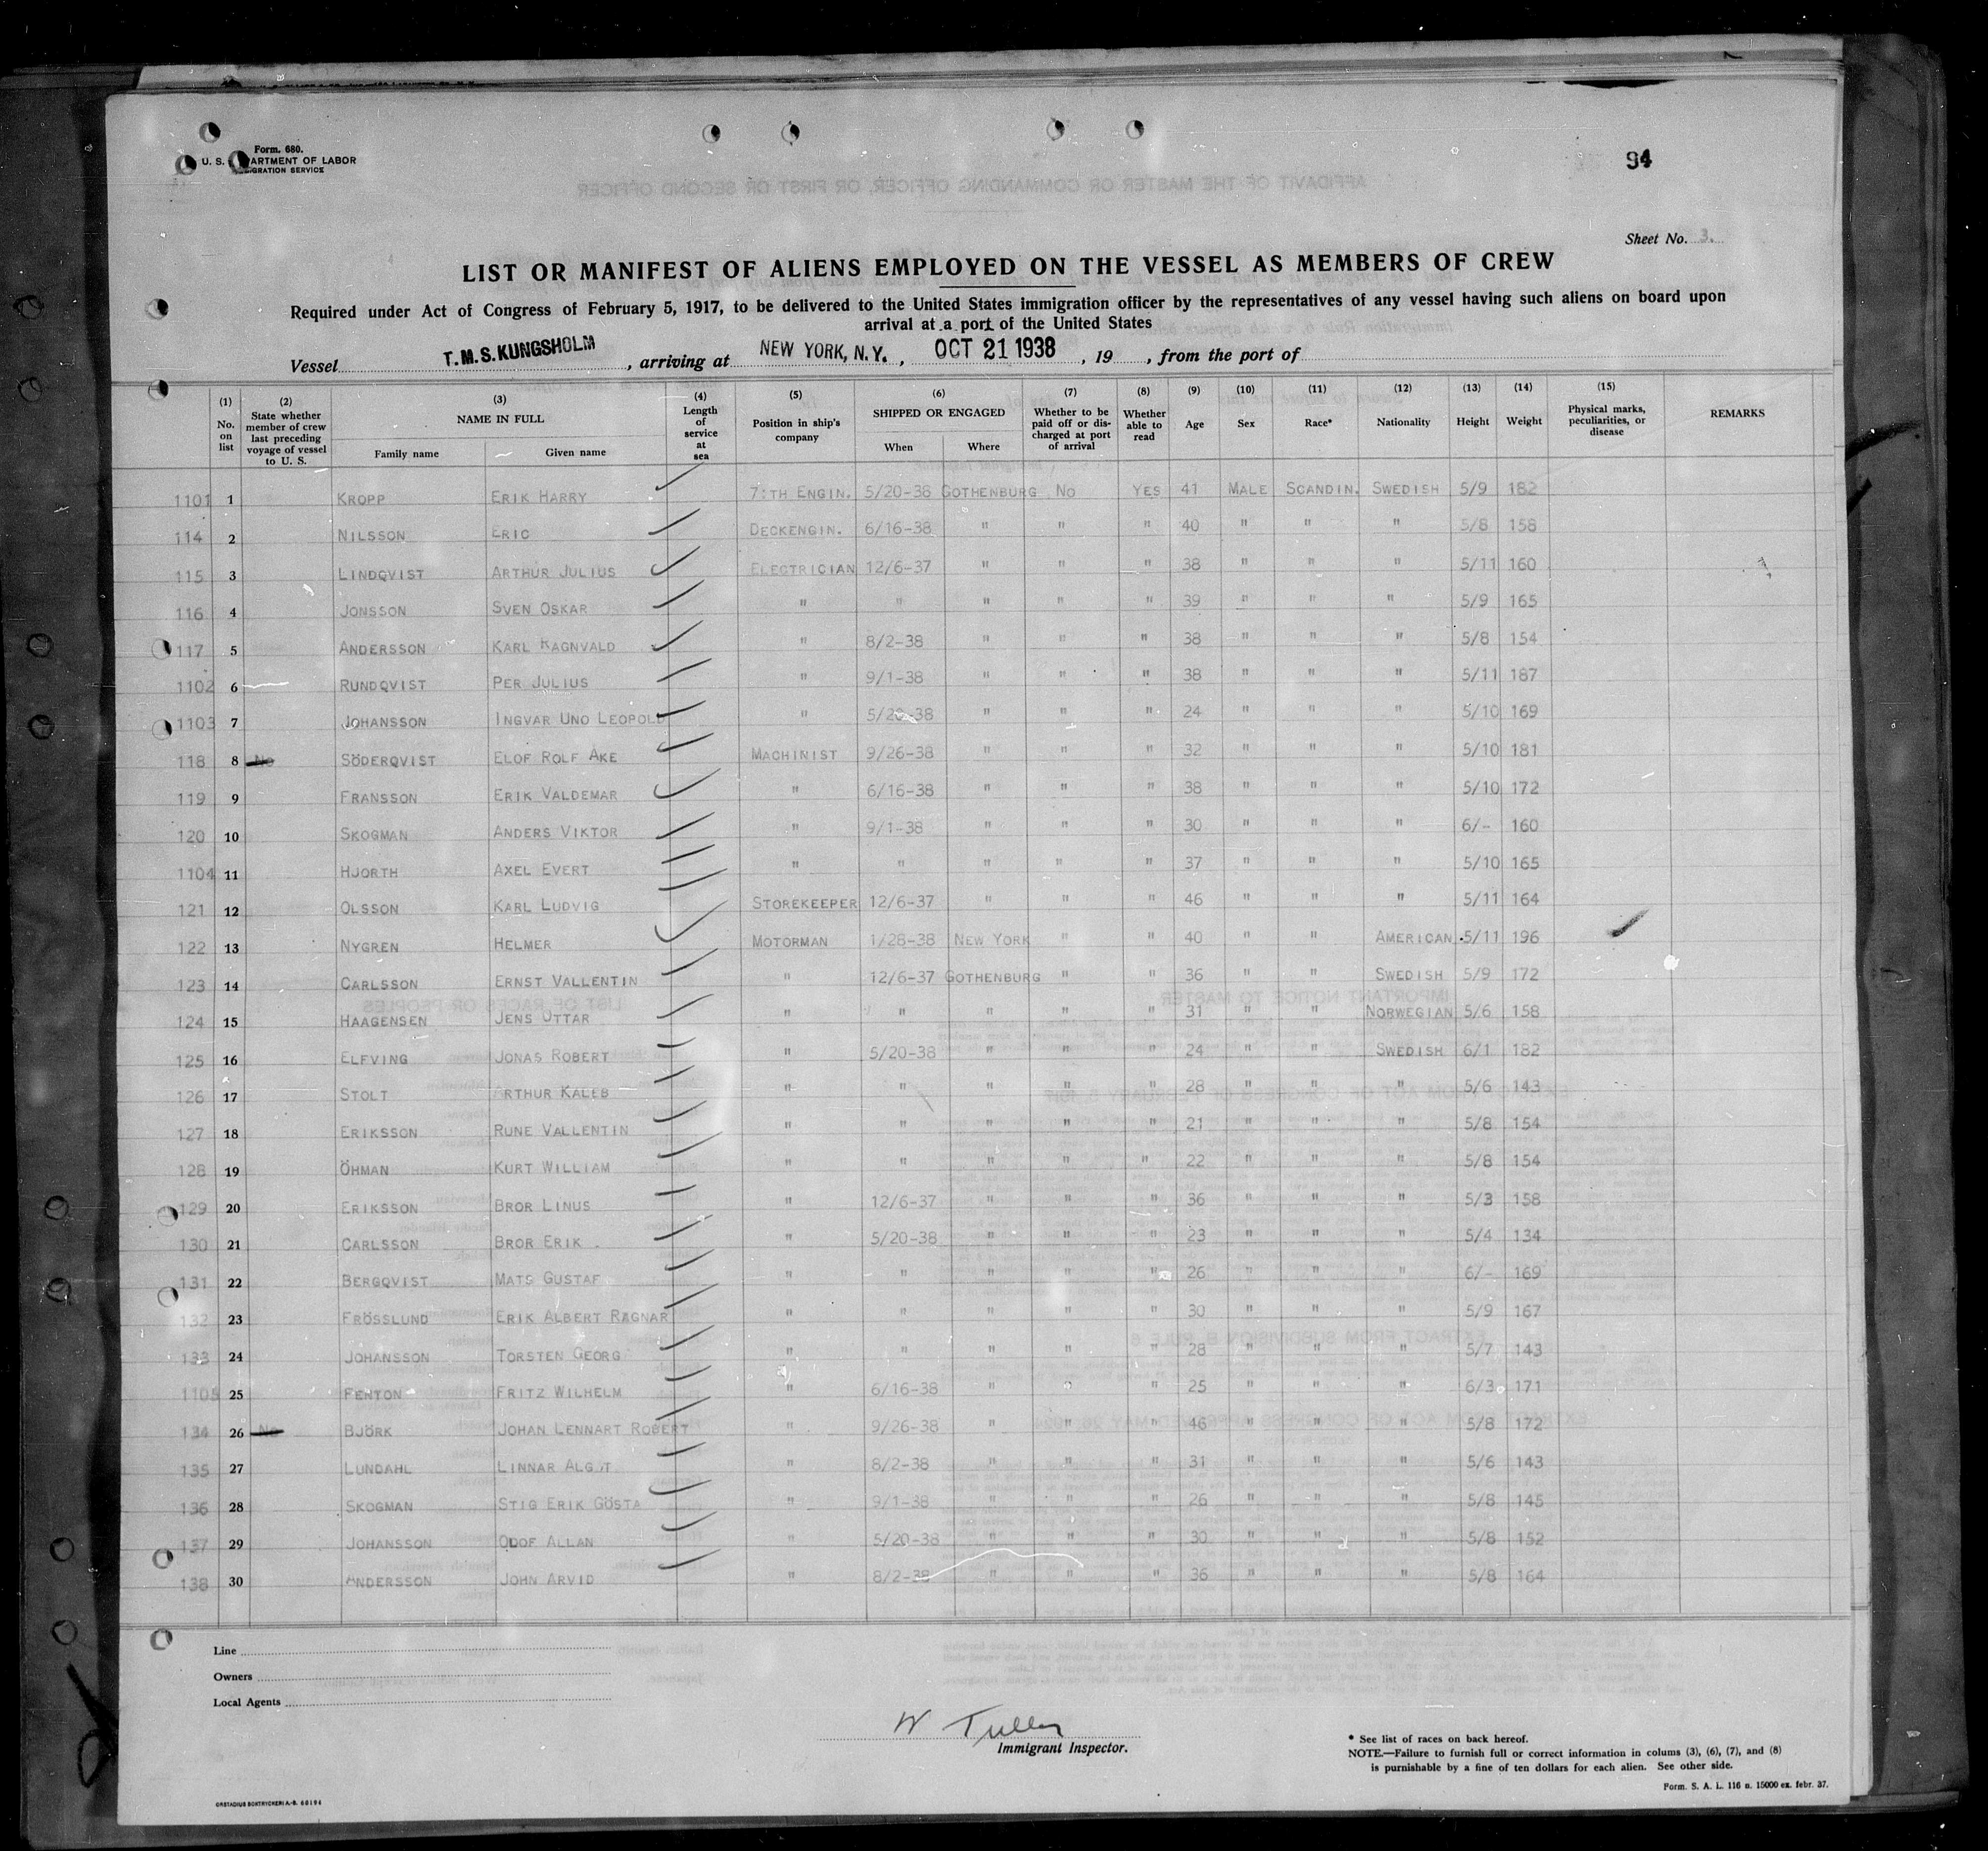 Form. 680.
U. S. DEPARTMENT OF LABOR
IMMIGRATION SERVICE
94
Sheet No. 3.
LIST OR MANIFEST OF ALIENS EMPLOYED ON THE VESSEL AS MEMBERS OF CREW
Required under Act of Congress of February 5, 1917, to be delivered to the United States immigration officer by the representatives of any vessel having such aliens on board upon
arrival at a port of the United States
Vessel T.M.S. KUNGSHOLM, arriving at NEW YORK, N.Y., OCT 21 1938, 19, from the port of
(1) No. on list (2) State whether member of crew last preceding voyage of vessel to U. S. (3) NAME IN FULL Family name Given name (4) Length of service at sea (5) Position in ship's company (6) SHIPPED OR ENGAGED When Where (7) Whether to be paid off or discharged at port of arrival (8) Whether able to read (9) Age (10) Sex (11) Race* (12) Nationality (13) Height (14) Weight (15) Physical marks, peculiarities, or disease REMARKS
1101 1 KROPP ERIK HARRY 7:TH ENGIN. 5/20-38 GOTHENBURG NO YES 41 MALE SCANDIN. SWEDISH 5/9 182
114 2 NILSSON ERIC DECKENGIN. 6/16-38 " " " 40 " " " 5/8 158
115 3 LINDQVIST ARTHUR JULIUS ELECTRICIAN 12/6-37 " " " 38 " " " 5/11 160
116 4 JONSSON SVEN OSKAR " " " " " 39 " " " 5/9 165
117 5 ANDERSSON KARL RAGNVALD " 8/2-38 " " " 38 " " " 5/8 154
1102 6 RUNDQVIST PER JULIUS " 9/1-38 " " " 38 " " " 5/11 187
1103 7 JOHANSSON INGVAR UNO LEOPOLD " 5/20-38 " " " 24 " " " 5/10 169
118 8 No SÖDERQVIST ELOF ROLF AKE MACHINIST 9/26-38 " " " 32 " " " 5/10 181
119 9 FRANSSON ERIK VALDEMAR " 6/16-38 " " " 38 " " " 5/10 172
120 10 SKOGMAN ANDERS VIKTOR " 9/1-38 " " " 30 " " " 6/- 160
1104 11 HJORTH AXEL EVERT " " " " " 37 " " " 5/10 165
121 12 OLSSON KARL LUDVIG STOREKEEPER 12/6-37 " " " 46 " " " 5/11 164
122 13 NYGREN HELMER MOTORMAN 1/28-38 NEW YORK " " 40 " " AMERICAN 5/11 196
123 14 CARLSSON ERNST VALLENTIN " 12/6-37 GOTHENBURG " " 36 " " SWEDISH 5/9 172
124 15 HAAGENSEN JENS OTTAR " " " " " 31 " " NORWEGIAN 5/6 158
125 16 ELFVING JONAS ROBERT " 5/20-38 " " " 24 " " SWEDISH 6/1 182
126 17 STOLT ARTHUR KALEB " " " " " 28 " " " 5/6 143
127 18 ERIKSSON RUNE VALLENTIN " " " " " 21 " " " 5/8 154
128 19 ÖHMAN KURT WILLIAM " " " " " 22 " " " 5/8 154
129 20 ERIKSSON BROR LINUS " 12/6-37 " " " 36 " " " 5/3 158
130 21 CARLSSON BROR ERIK " 5/20-38 " " " 23 " " " 5/4 134
131 22 BERGQVIST MATS GUSTAF " " " " " 26 " " " 6/- 169
132 23 FRÖSSLUND ERIK ALBERT RAGNAR " " " " " 30 " " " 5/9 167
133 24 JOHANSSON TORSTEN GEORG " " " " " 28 " " " 5/7 143
1105 25 FRITZ WILHELM " 6/16-38 " " " 25 " " " 6/3 171
134 26 No BJÖRK JOHAN LENNART ROBERT " 9/26-38 " " " 46 " " " 5/8 172
135 27 LUNDAHL LINNAR " 8/2-38 " " " 31 " " " 5/6 143
136 28 SKOGMAN STIG ERIK GÖSTA " 9/1-38 " " " 26 " " " 5/8 145
137 29 JOHANSSON ALLAN " 5/20-38 " " " 30 " " " 5/8 152
138 30 ANDERSSON JOHN ARVID " 8/2-38 " " " 36 " " " 5/8 164
Line
Owners
Local Agents
W Tuller
Immigrant Inspector.
* See list of races on back hereof.
NOTE.—Failure to furnish full or correct information in colums (3), (6), (7), and (8)
is purnishable by a fine of ten dollars for each alien. See other side.
Form. S. A. L. 116 n. 15000 ex. febr. 37.